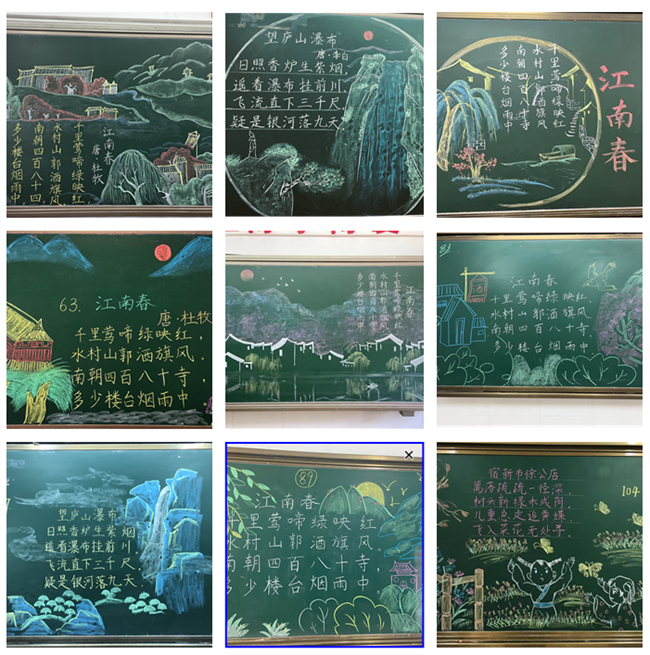 江南春
唐·杜牧
千里莺啼绿映红
水村山郭酒旗风
南朝四百八十
多少楼台烟雨中
望庐山瀑布
唐·李白
日照香炉生紫烟,
遥看瀑布挂前川,
飞流直下三千尺,
疑是银河落九天,
江南春
千里莺啼绿映红
水村山郭酒旗风
南朝四百八十寺
多少楼台烟雨中
63. 江南春
唐·杜牧
千里莺啼绿映红,
水村山郭酒旗风,
南朝四百八十寺,
多少楼台烟雨中
江南春
千里莺啼绿映红
水村山郭酒旗风
南朝四百八十寺
多少楼台烟雨中
江南春
千里莺啼绿映红
水村山郭酒旗风
南朝四百八十寺
多少楼台烟雨中
望庐山瀑布
日照香炉生紫烟
遥看瀑布挂前川
飞流直下三千尺
疑是银河落九天
89
江南春
千里莺啼绿映红
水村山郭酒旗风,
南朝四百八十寺,
多少楼台烟雨中
宿新市徐公店
104
篱落疏疏一径深,
树头新绿未成阴
儿童急走追黄蝶,
飞入菜花无处寻